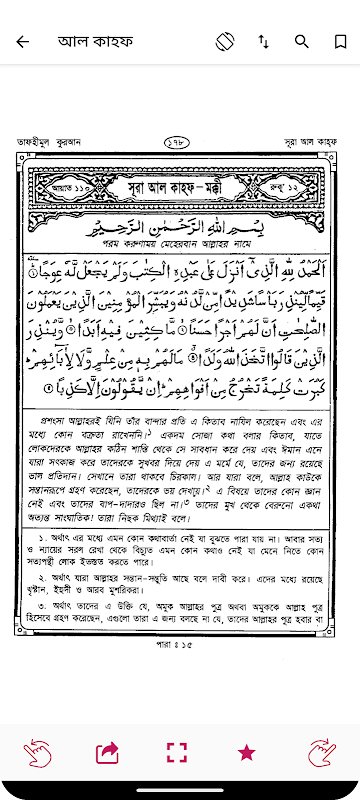 আল কাহফ
তাফহীমুল কুরআন
১৭৮
সূরা আল কাহ্ফ
আয়াত ১১০
সূরা আল কাহ্ফ-মক্কী
রুকূ' ১২
بِسْمِ اللهِ الرَّحْمٰنِ الرَّحِيْمِ
পরম করুণাময় মেহেরবান আল্লাহর নামে
اَلْحَمْدُ لِلّٰهِ الَّذِيْٓ اَنْزَلَ عَلٰى عَبْدِهِ الْكِتٰبَ وَلَمْ يَجْعَلْ لَّهٗ عِوَجًا ۝١
قَيِّمًا لِّيُنْذِرَ بَاْسًا شَدِيْدًا مِّنْ لَّدُنْهُ وَيُبَشِّرَ الْمُؤْمِنِيْنَ الَّذِيْنَ يَعْمَلُوْنَ
الصّٰلِحٰتِ اَنَّ لَهُمْ اَجْرًا حَسَنًا ۝٢ مَّاكِثِيْنَ فِيْهِ اَبَدًا ۝٣ وَّيُنْذِرَ
الَّذِيْنَ قَالُوا اتَّخَذَ اللهُ وَلَدًا ۝٤ مَا لَهُمْ بِهٖ مِنْ عِلْمٍ وَّلَا لِاٰبَآئِهِمْ
كَبُرَتْ كَلِمَةً تَخْرُجُ مِنْ اَفْوَاهِهِمْ اِنْ يَّقُوْلُوْنَ اِلَّا كَذِبًا ۝٥
প্রশংসা আল্লাহরই যিনি তাঁর বান্দার প্রতি এ কিতাব নাযিল করেছেন এবং এর
মধ্যে কোন বক্রতা রাখেননি।১ একদম সোজা কথা বলার কিতাব, যাতে
লোকদেরকে আল্লাহর কঠিন শাস্তি থেকে সে সাবধান করে দেয় এবং ঈমান এনে
যারা সৎকাজ করে তাদেরকে সুখবর দিয়ে দেয় এ মর্মে যে, তাদের জন্য রয়েছে
ভাল প্রতিদান। সেখানে তারা থাকবে চিরকাল। আর যারা বলে, আল্লাহ কাউকে
সন্তানরূপে গ্রহণ করেছেন, তাদেরকে ভয় দেখায়।২ এ বিষয়ে তাদের কোন জ্ঞান
নেই এবং তাদের বাপ-দাদারও ছিল না।৩ তাদের মুখ থেকে বেরুনো একথা
অত্যন্ত সাংঘাতিক! তারা নিছক মিথ্যাই বলে।
১. অর্থাৎ এর মধ্যে এমন কোন কথাবার্তা নেই যা বুঝতে পারা যায় না। আবার সত্য
ও ন্যায়ের সরল রেখা থেকে বিচ্যুত এমন কোন কথাও নেই যা মেনে নিতে কোন
সত্যপন্থী লোক ইতস্তত করতে পারে।
২. অর্থাৎ যারা আল্লাহর সন্তান-সন্ততি আছে বলে দাবী করে। এদের মধ্যে রয়েছে
খৃস্টান, ইহুদী ও আরব মুশরিকরা।
৩. অর্থাৎ তাদের এ উক্তি যে, অমুক আল্লাহর পুত্র অথবা অমুককে আল্লাহ পুত্র
হিসেবে গ্রহণ করেছেন, এগুলো তারা এ জন্য বলছে না যে, তাদের আল্লাহর পুত্র হবার বা
পারা ঃ ১৫